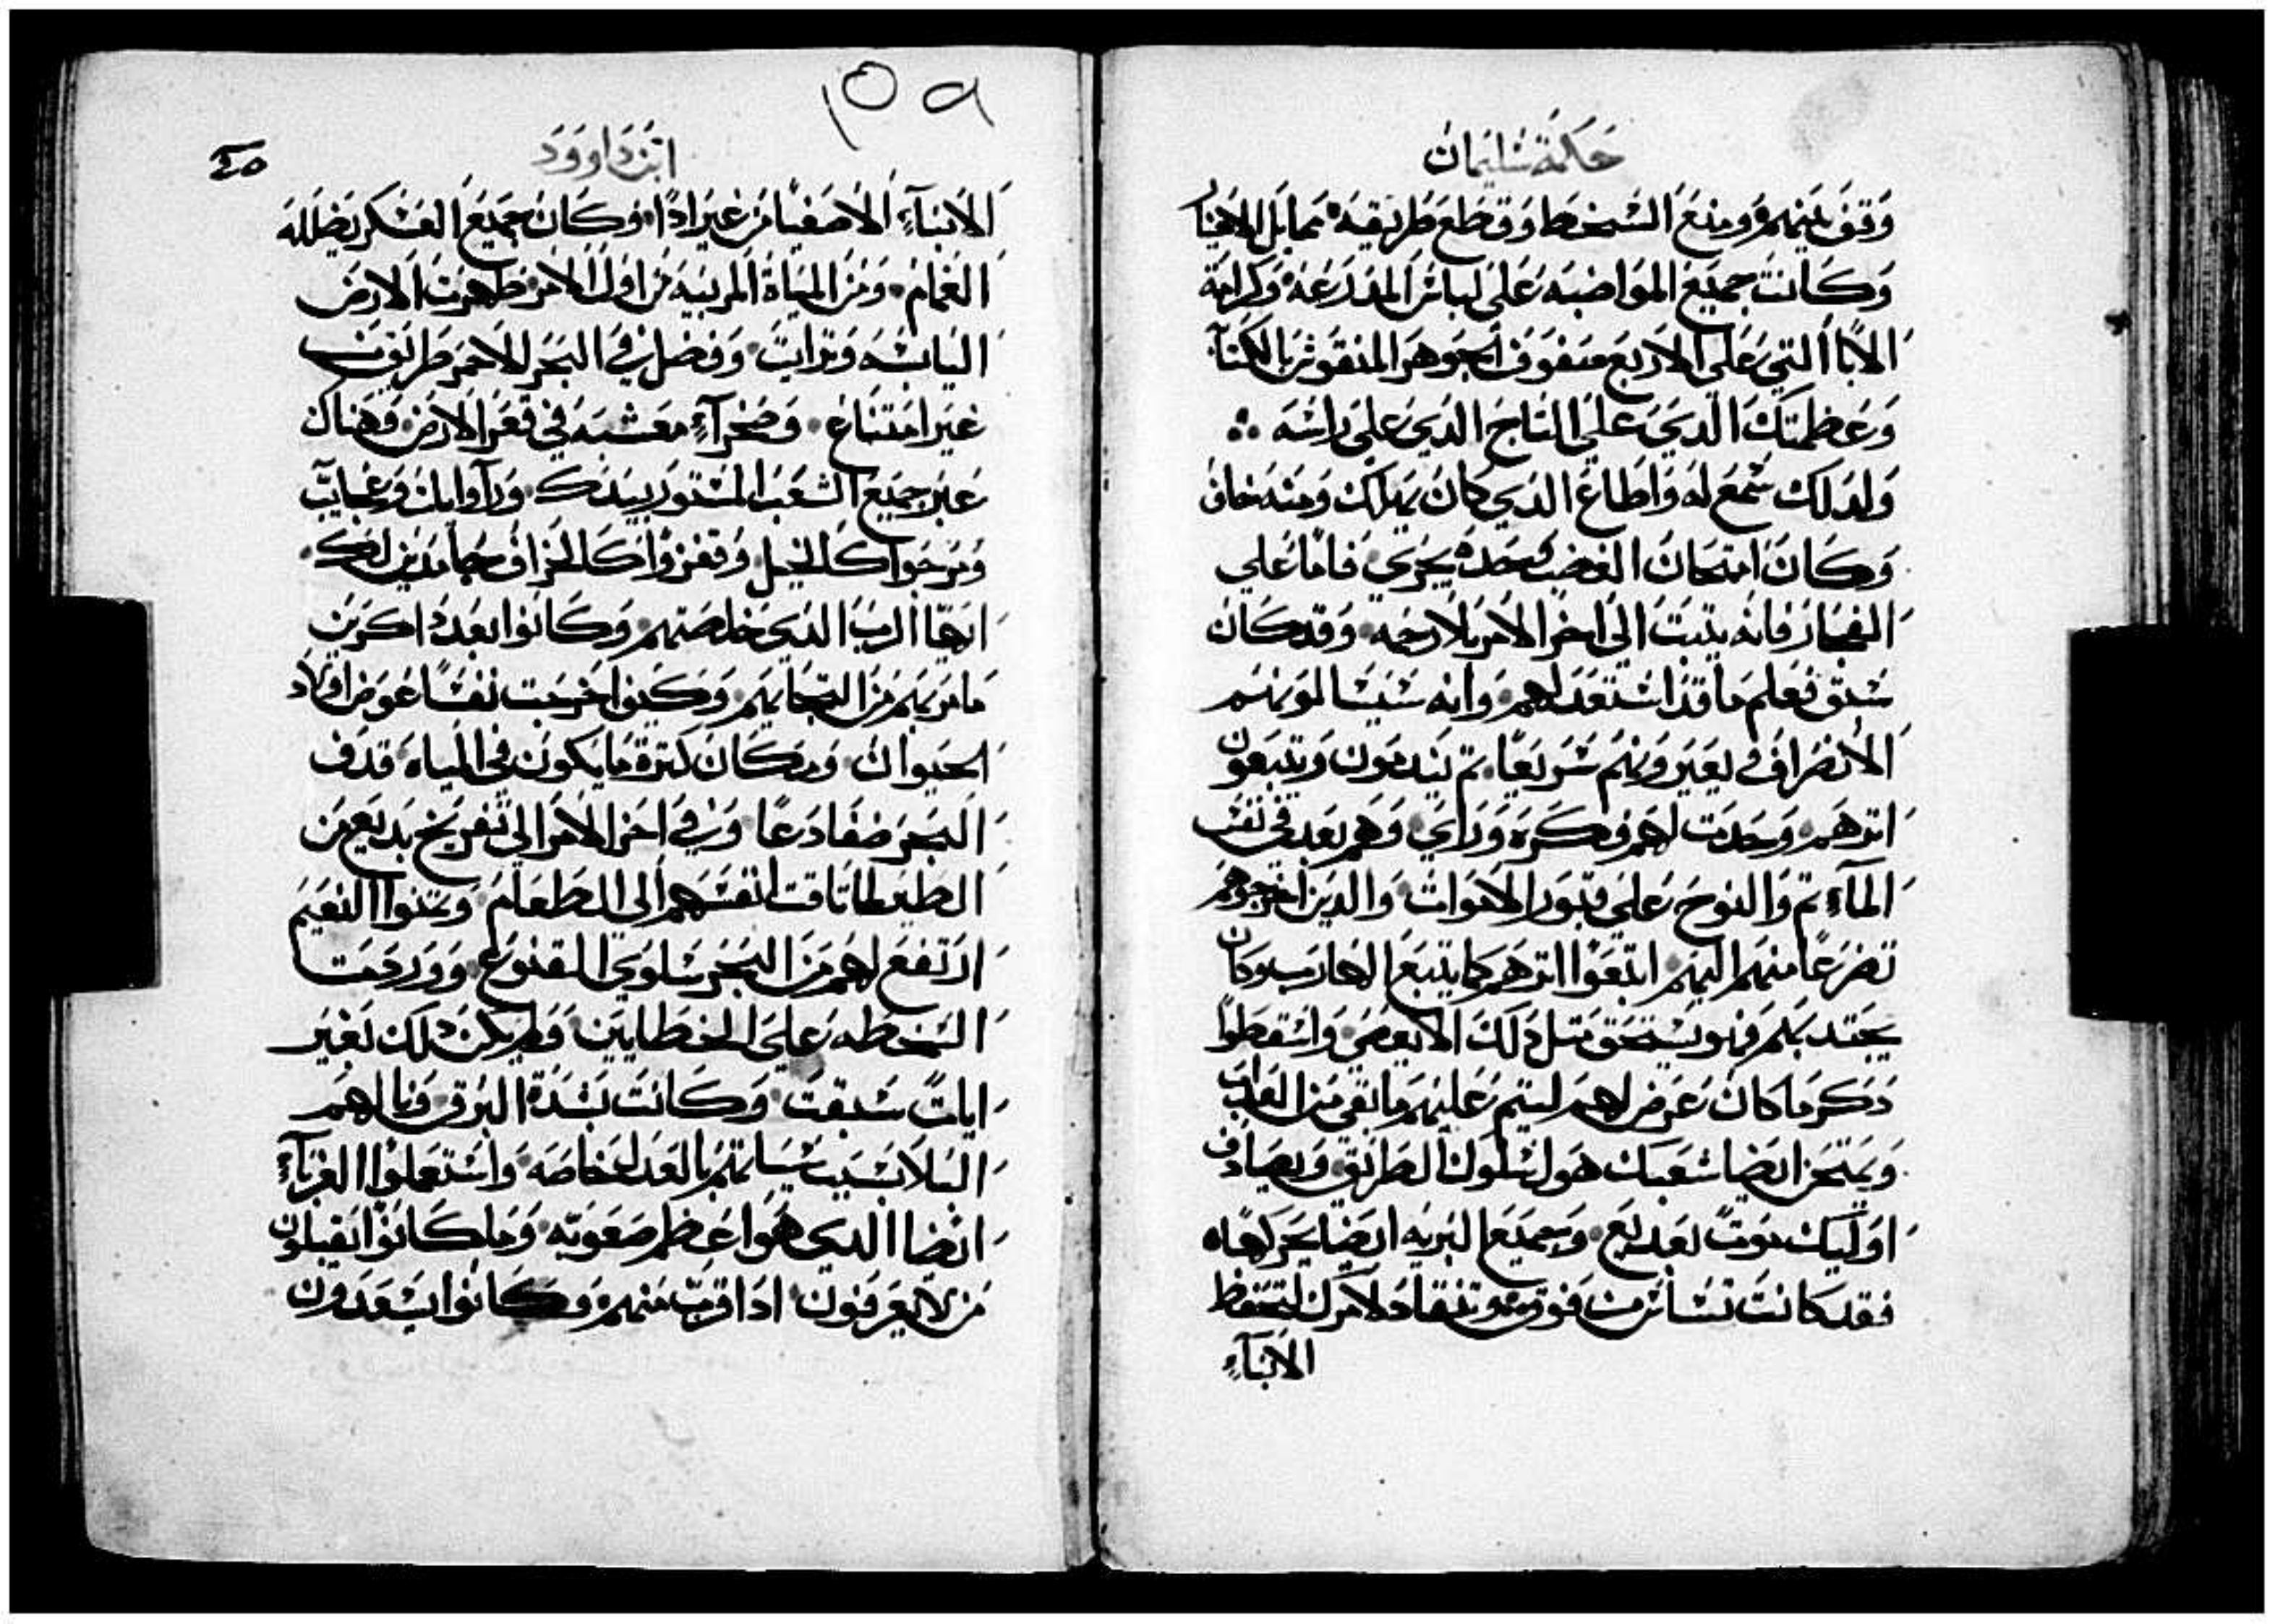 حكمة سليمان
وقف بينهم ومنع السخط وقطع طريقه مما بل الاحيا
وكانت جميع المواضبه على لباس المدرعه وكرامة
الابا التي على الاربع صفوف الجوهر المنقوش بالكتا
وعظمتك الدي على التاج الدي على راسه
ولدلك سمع له واطاع الدي كان يهلك ومنه خاف
وكان امتحان الغضب وحده يجزي فاما علي
الفجار فانه يتبت الى اخر الامر بلا رحمه وقد كان
سبق فعلم ما قد استعد لهم وانه سيسالمونهم
الانصراف ويعيرونهم سريعا تم يندمون ويتبعون
اترهم وحدت لهم فكره وراي وهم بعد في نفس
الماء تم والنوح على قبور الاموات والدين اخرجوهم
تضرعا منهم اليهم ابتغوا اترهم كما يتبع الهارب وكان
يجتدبهم فهو يستحق متل دلك الانقضي واسقطوا
دكر ما كان عرض لهم ليتم عليهم ما بقي من العداب
ويمتحن ايضا شعبك هول سلوك الطريق ويصادف
اوليك موت بعد بديع وجميع البريه ايضا بحركهاه
فقد كانت تنساس من فوق وتنقاد لامرك لتحتفظ
الابناء
١٥٩
ابن داوود
الابناء الاصفيا من غير ادا وكان جميع العسكر يضلله
الغمام ومن المياة المريبه من اول الامر ظهرت الارض
اليابسه وترايت وفضل في البحر الاحمر طريق
غير امتناع وصخراء معشبه في قعر الارض وهناك
عبر جميع الشعب المستور بيدك وراوا ايات وعجايب
ومرحوا كالخيل وقفزوا كالخراف حامدين لك
ايها الرب الدي خلصتهم وكانوا بعد اكرين
ما مر بهم من التجايهم وكيف اخرجت نفسا عوض اولاد
الحيوان ومكان كترة ما يكون في المياه قدف
البحر ضفادعا وفي اخر الامر الى تفريخ بديع من
الطير لما تاقت انفسهم الى الطعام وتمنوا النعيم
ارتفع لهم من البحر سلوي القنوع ووردت
السخطه على الخطايين ولم يكن دلك بغير
ايات سبقت وكانت بشدة البرق ونالهم
البلا بسبب سياتهم بالعدل خاصه واستعملوا الغرباء
ايضا الدي هو اعظم صعوبه وما كانوا يقبلون
من لا يعرفون ادا قرب منهم وكانوا يستعبدون